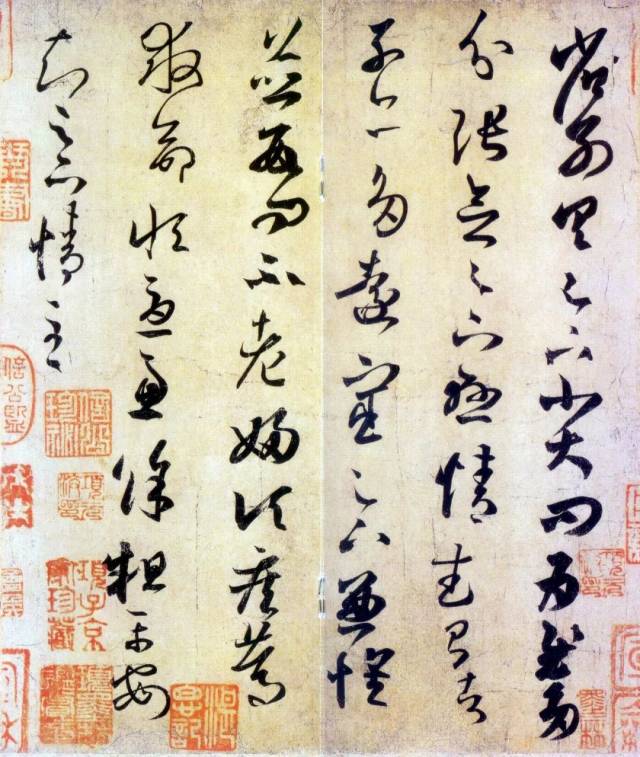 省別具足下小大問為慰多
分張念足下懸情武昌諸
子亦多遠宦足下兼懷
並數問不老婦頃疾篤
救命恒憂慮餘粗平安
知足下情至
項子京家珍藏